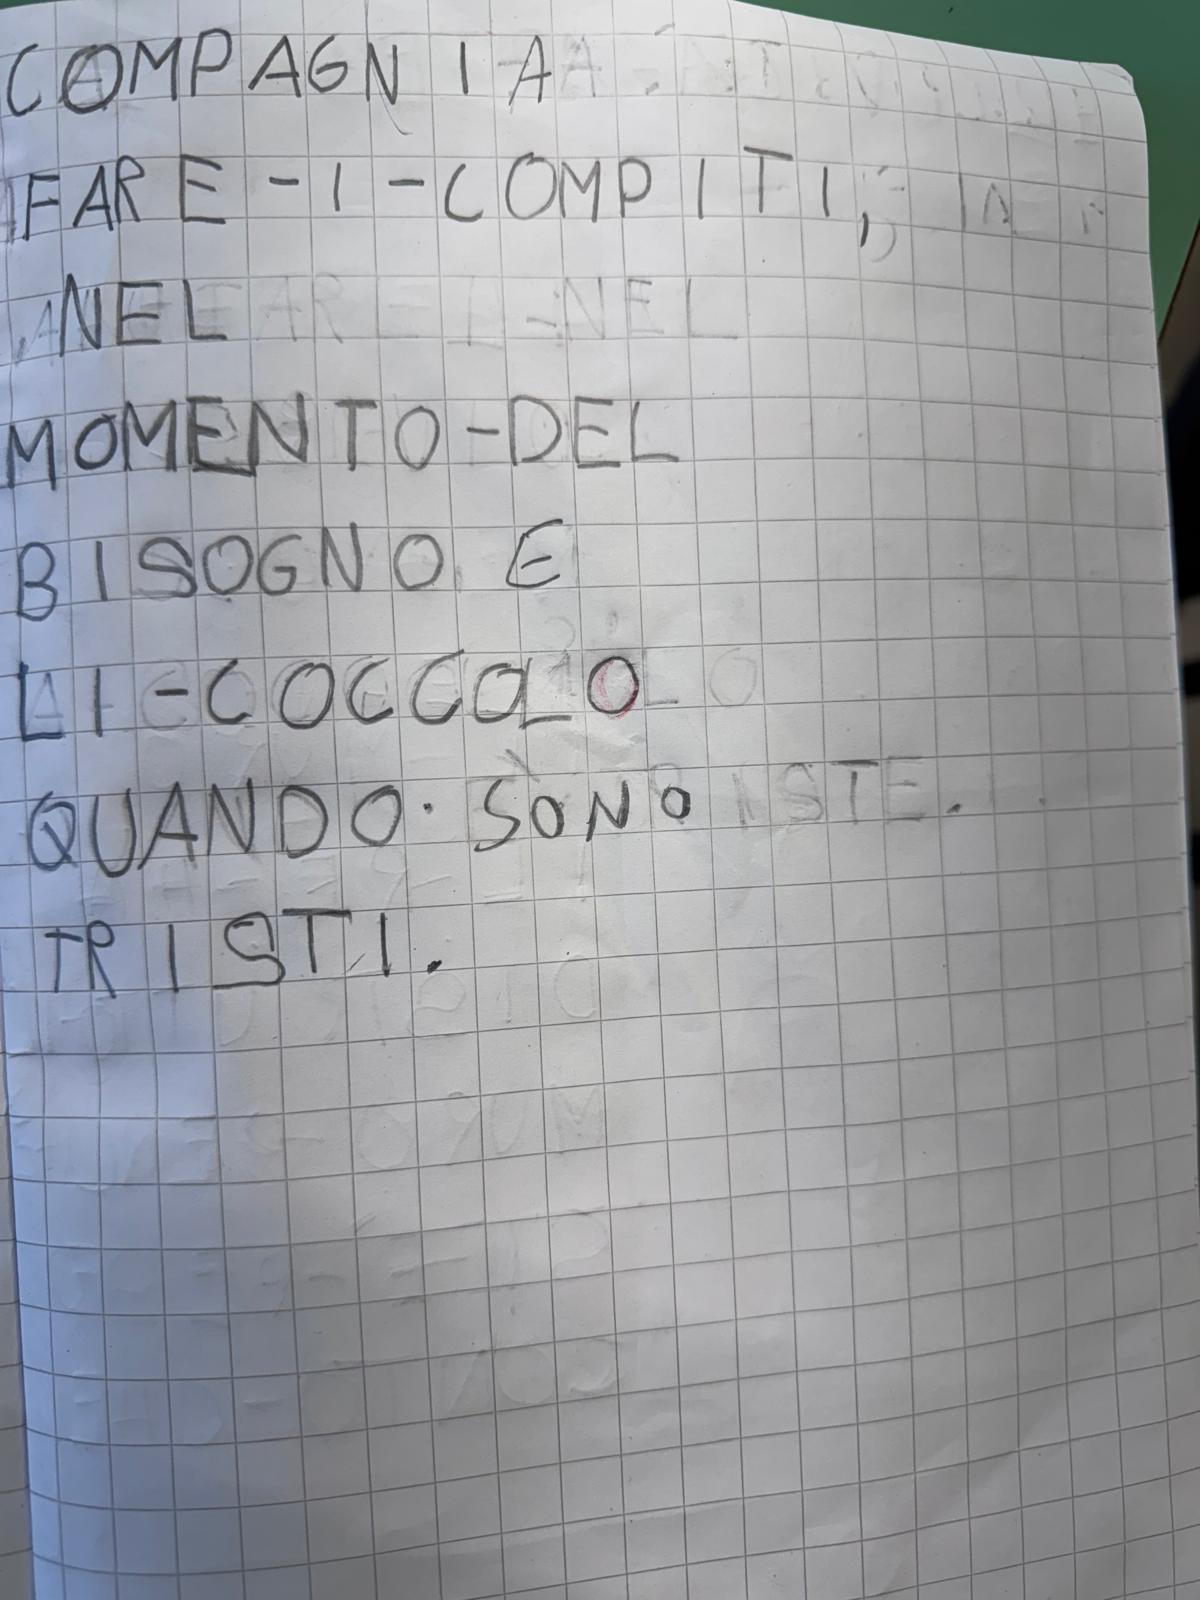 COMPAGNIA A
FARE-I-COMPITI,
NEL
MOMENTO-DEL
BISOGNO E
LI-COCCOLO
QUANDO. SONO
TRISTI.